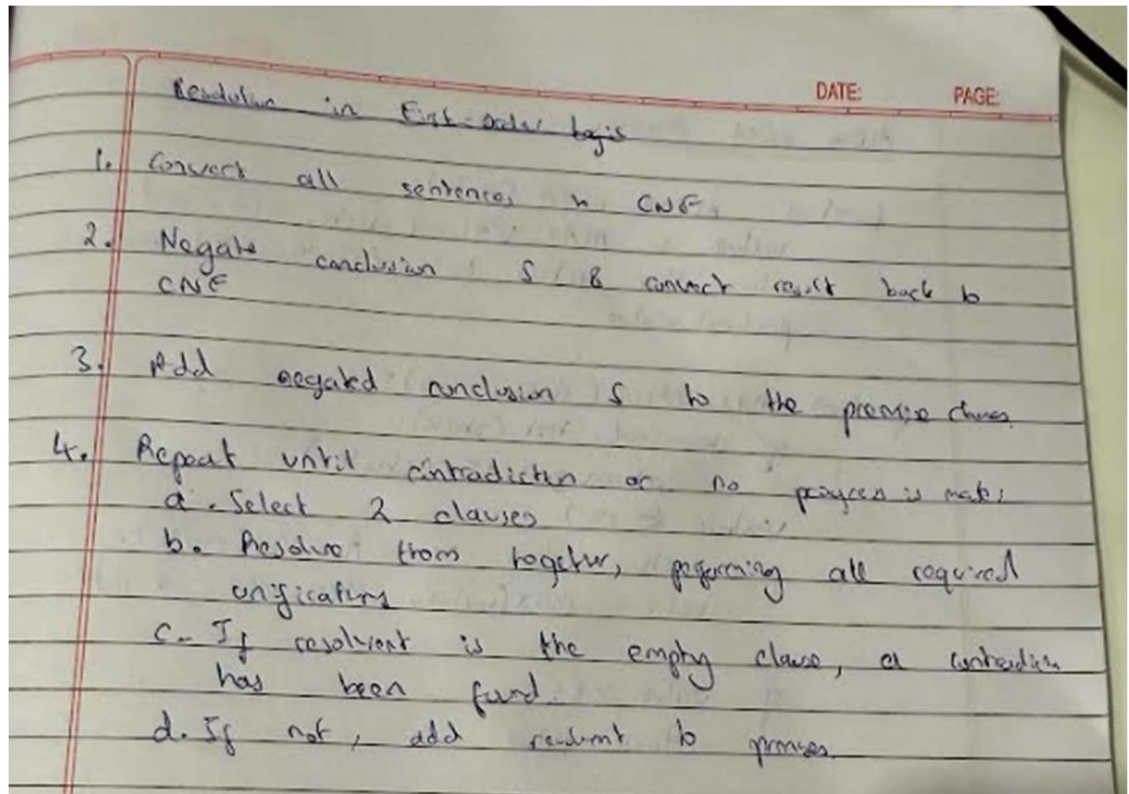 DATE: PAGE:
Resolution in First-Order Logic
1. Convert all sentences to CNF
2. Negate conclusion S & convert result back to
CNF
3. Add negated conclusion S to the premise clauses
4. Repeat until contradiction or no progress is made:
a. Select 2 clauses
b. Resolve them together, performing all required
unifications
c. If resolvent is the empty clause, a contradiction
has been found
d. If not, add resolvent to premises.